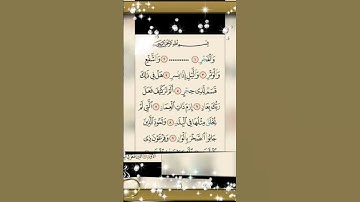 بِسْمِ اللَّهِ الرَّحْمَٰنِ الرَّحِيمِ
وَالْفَجْرِ ۝ .......... ۝ وَالشَّفْعِ
وَالْوَتْرِ ۝ وَاللَّيْلِ إِذَا يَسْرِ ۝ هَلْ فِي ذَٰلِكَ
قَسَمٌ لِّذِي حِجْرٍ ۝ أَلَمْ تَرَ كَيْفَ فَعَلَ
رَبُّكَ بِعَادٍ ۝ إِرَمَ ذَاتِ الْعِمَادِ ۝ الَّتِي لَمْ
يُخْلَقْ مِثْلُهَا فِي الْبِلَادِ ۝ وَثَمُودَ الَّذِينَ
جَابُوا الصَّخْرَ بِالْوَادِ ۝ وَفِرْعَوْنَ ذِي